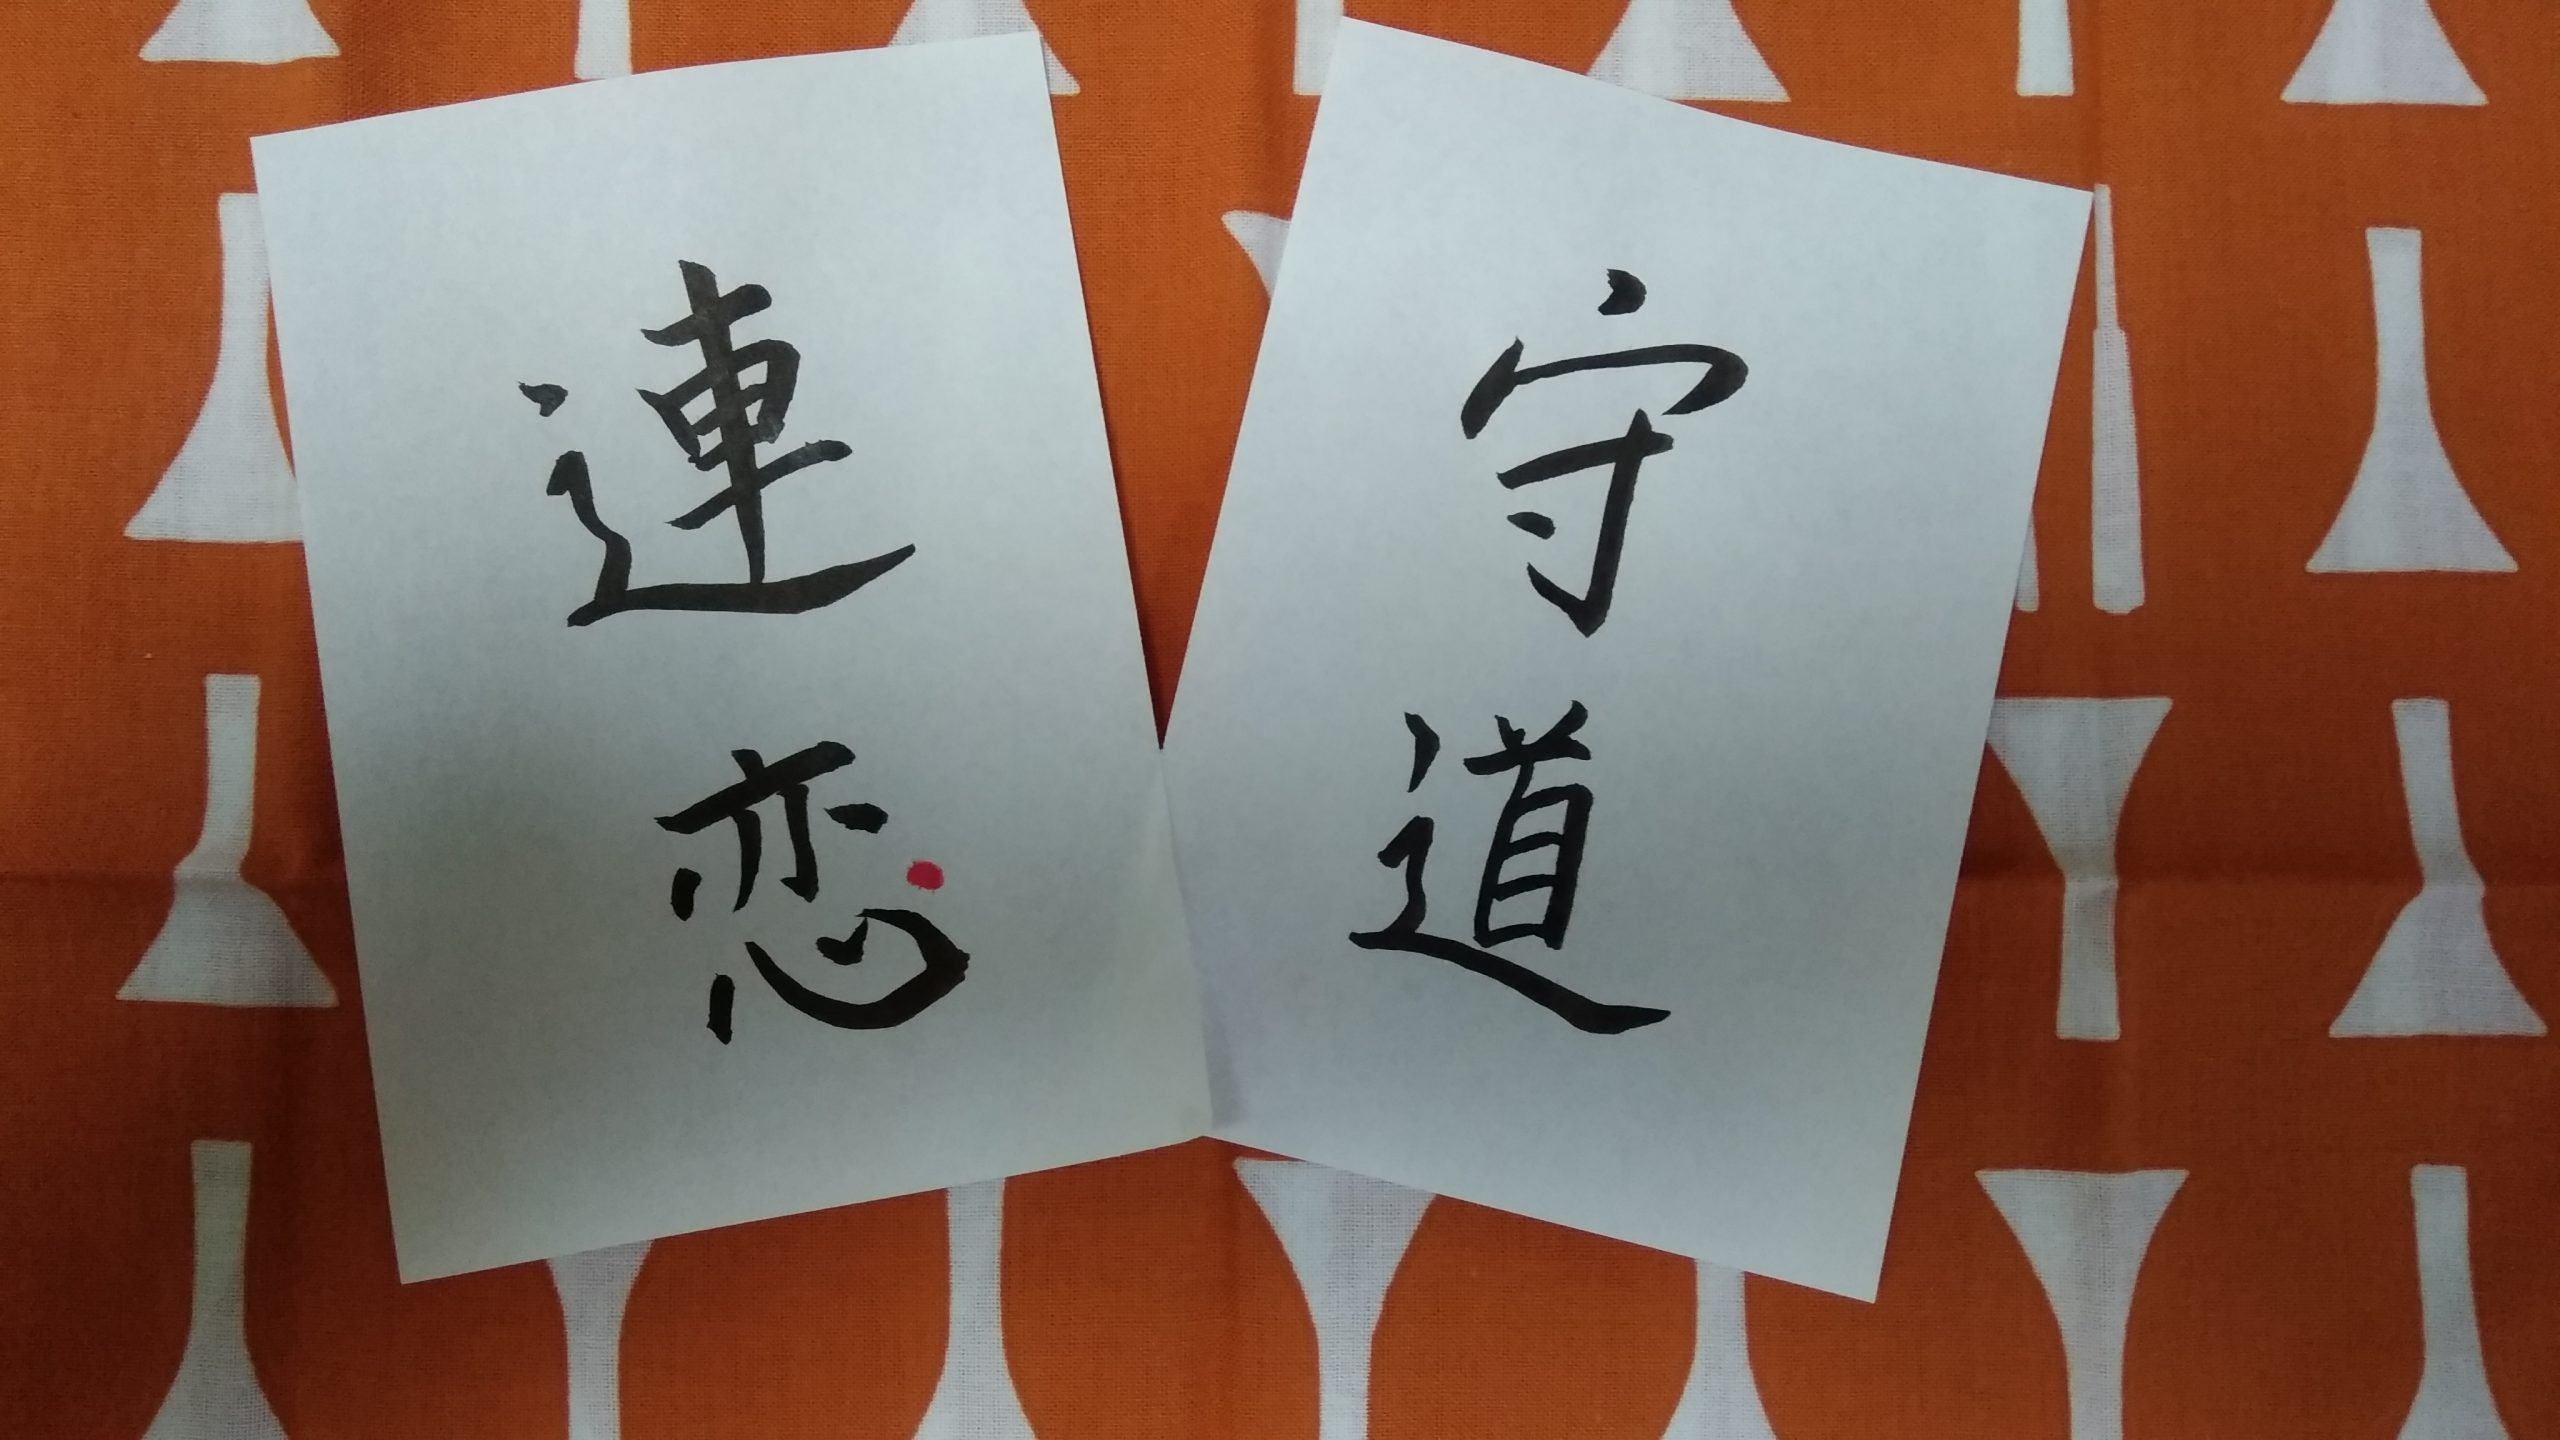 守道
連恋